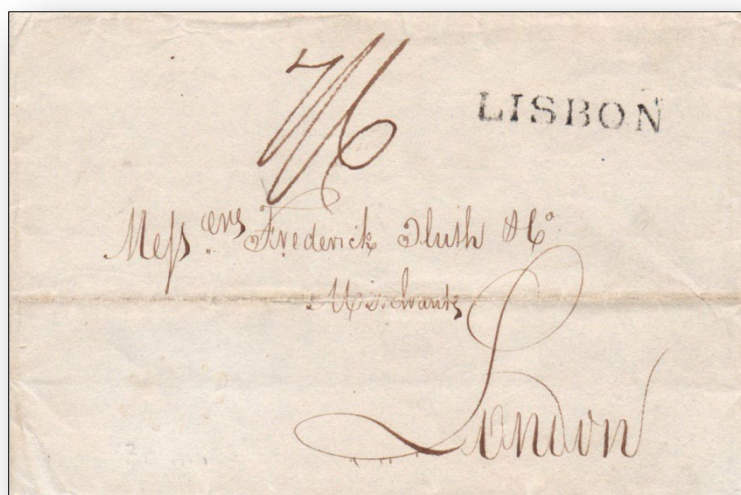 LISBON
Meſsers Frederick Huth &Co
Merchants
London